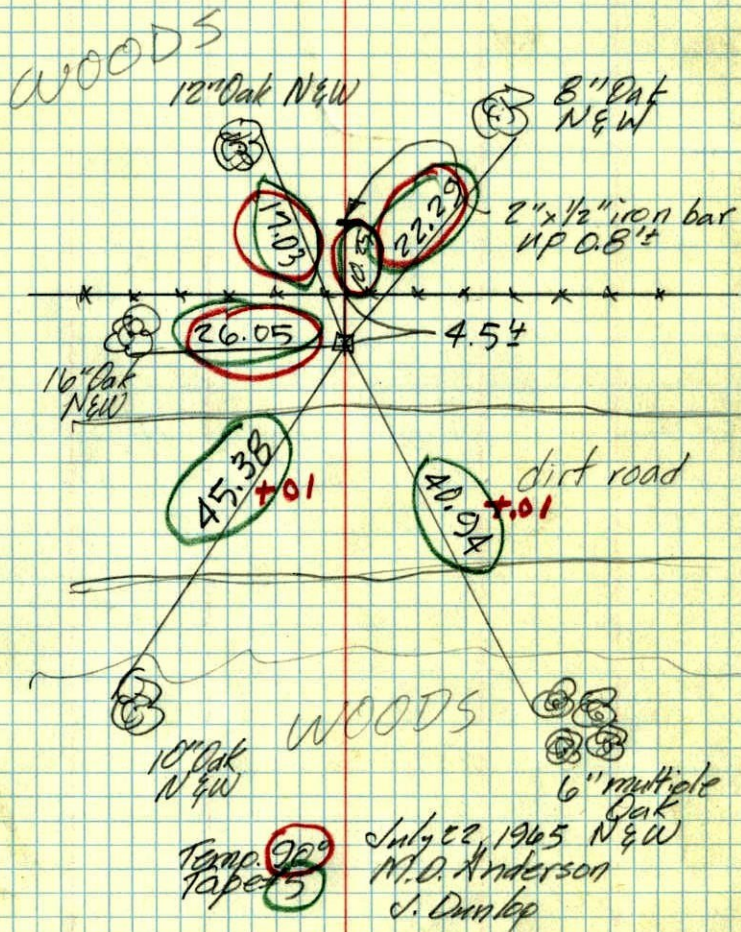 WOODS
12" Oak N&W
8" Oak
N & W
17.03
22.29
2" x 1/2" iron bar
up 0.8'±
26.05
4.5±
16" Oak
N&W
45.38
+01
40.94
+.01
dirt road
WOODS
10" Oak
N & W
6" multiple
Oak
N & W
Temp. 90°
Tape 5
July 22, 1965
M.D. Anderson
J. Dunlop